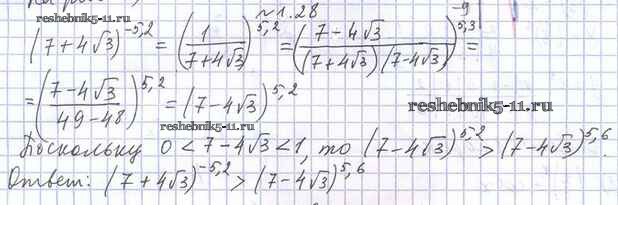 №1.28
reshebnik5-11.ru
(7+4√3)^-5,2 = (1/(7+4√3))^5,2 = ((7-4√3)/((7+4√3)(7-4√3)))^5,3 =
-9
= ((7-4√3)/(49-48))^5,2 = (7-4√3)^5,2
reshebnik5-11.ru
reshebnik5-11.ru
Поскольку 0 < 7-4√3 < 1, то (7-4√3)^5,2 > (7-4√3)^5,6.
Ответ: (7+4√3)^-5,2 > (7-4√3)^5,6